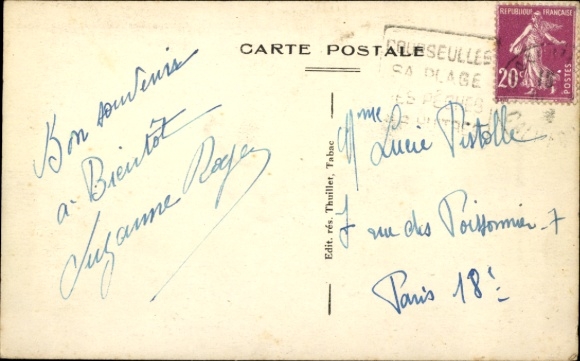 CARTE POSTALE
COURSEULLES
SA PLAGE
SES PÊCHES
REPUBLIQUE FRANÇAISE
20c
POSTES
Bon souvenir
à Bientôt
Suzanne Roger
Edit. rés. Thuillet, Tabac
Mme Lucie Pistolle
7 rue des Poissonnier - 7
Paris 18e